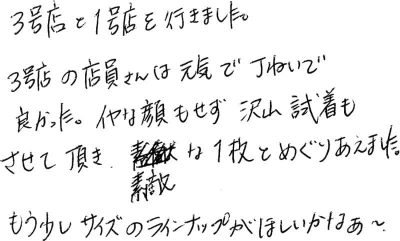 3号店と1号店を行きました。
3号店の店員さんは元気で丁ねいで
良かった。イヤな顔もせず 沢山 試着も
させて頂き、素敵な1枚とめぐりあえました。
もう少し サイズのラインナップがほしいかなぁ〜